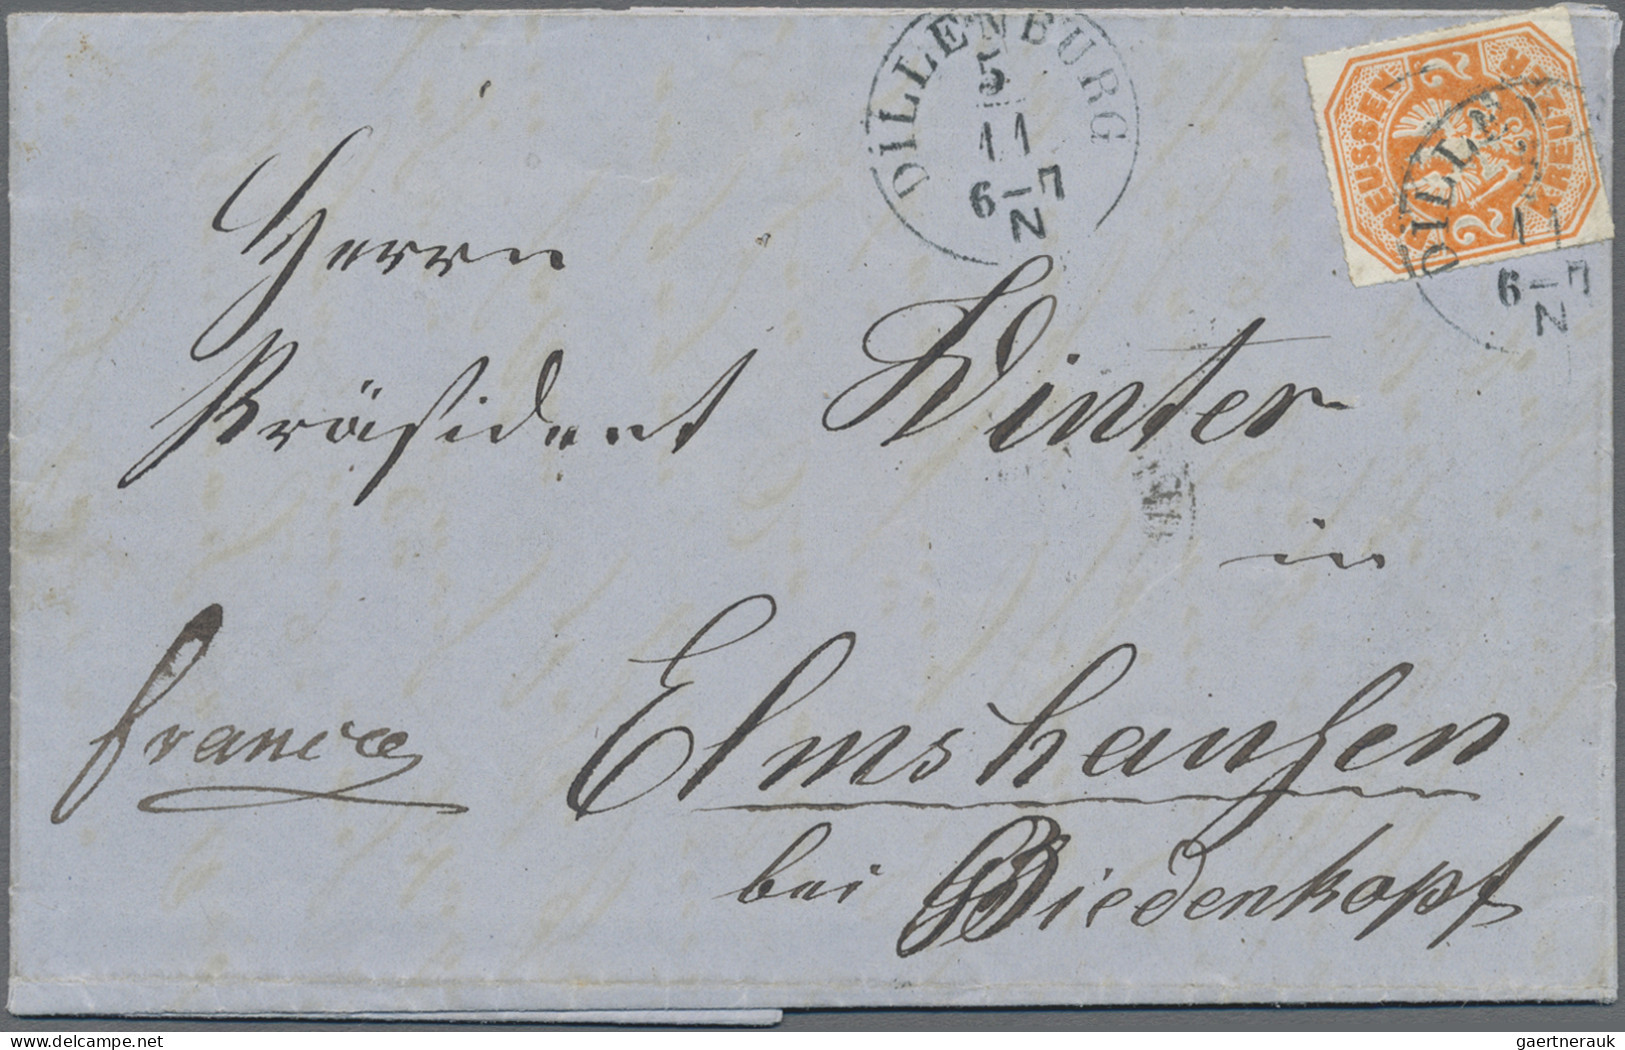 DILLENBURG
5
11
6-7
N
EUSSEN
KREUZER
DILLE
11
6-7
N
Herrn
Präsident Winter
in
franco
Elmshausen
bei Biedenkopf
delcampe.net
gaertnerauk